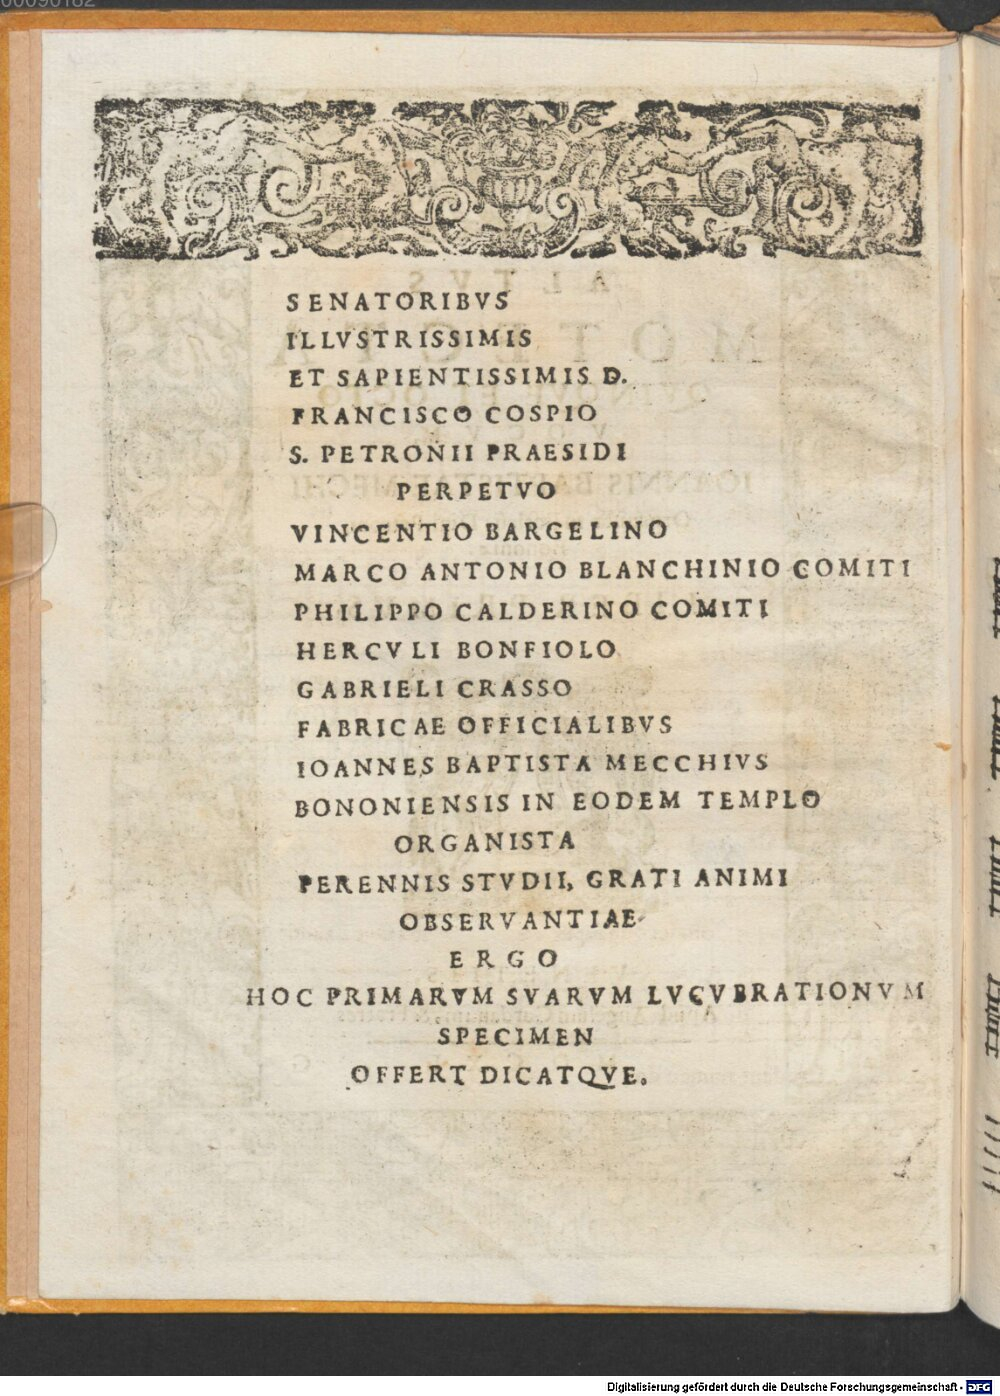 00090182
SENATORIBVS
ILLVSTRISSIMIS
ET SAPIENTISSIMIS D.
FRANCISCO COSPIO
S. PETRONII PRAESIDI
PERPETVO
VINCENTIO BARGELINO
MARCO ANTONIO BLANCHINIO COMITI
PHILIPPO CALDERINO COMITI
HERCVLI BONFIOLO
GABRIELI CRASSO
FABRICAE OFFICIALIBVS
IOANNES BAPTISTA MECCHIVS
BONONIENSIS IN EODEM TEMPLO
ORGANISTA
PERENNIS STVDII, GRATI ANIMI
OBSERVANTIAE
ERGO
HOC PRIMARVM SVARVM LVCVBRATIONVM
SPECIMEN
OFFERT DICATQVE.
Digitalisierung gefördert durch die Deutsche Forschungsgemeinschaft - DFG